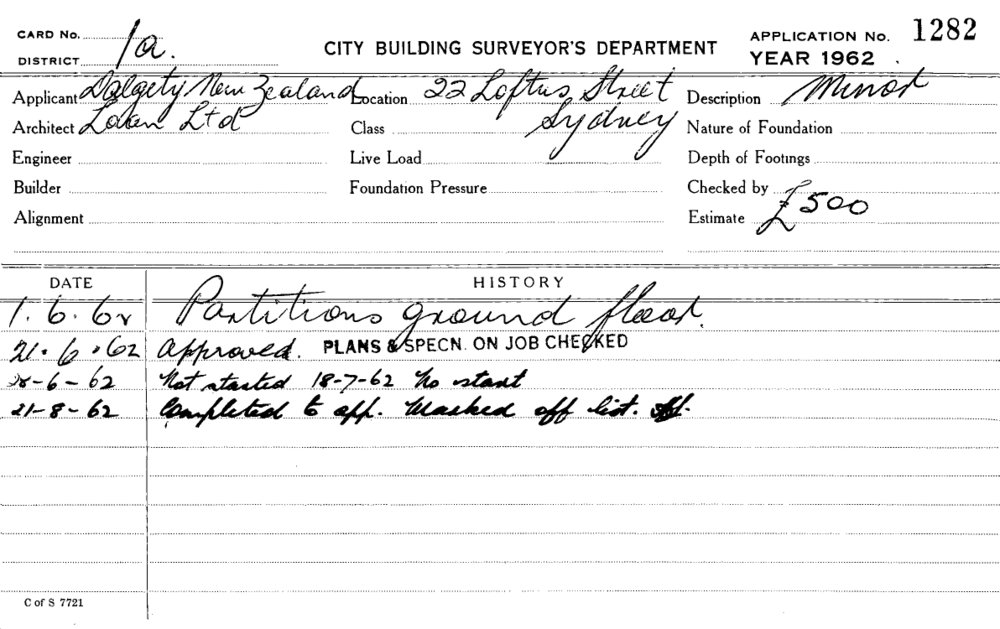 CARD No. 1a.
CITY BUILDING SURVEYOR'S DEPARTMENT
APPLICATION No. 1282
DISTRICT
YEAR 1962
Applicant Dalgety New Zealand Location 22 Loftus Street Description Minor
Architect Loan Ltd Class Sydney Nature of Foundation
Engineer Live Load Depth of Footings
Builder Foundation Pressure Checked by
Alignment Estimate £500
DATE HISTORY
1.6.62 Partitions ground floor.
21.6.62 Approved. PLANS & SPECN. ON JOB CHECKED
28-6-62 Not started 18-7-62 No start
21-8-62 Completed to app. Marked off list.
C of S 7721